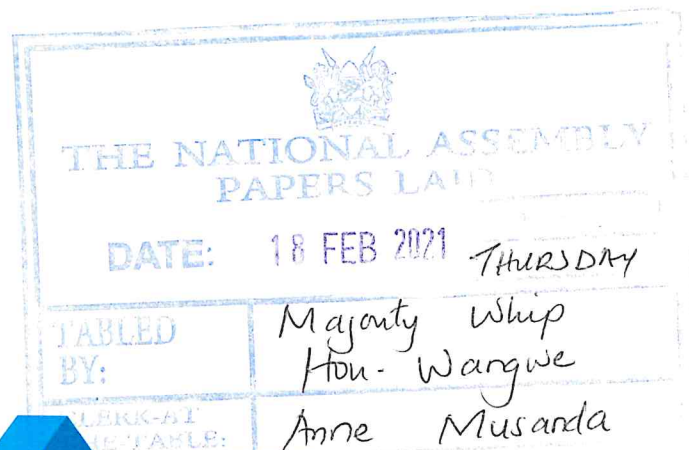 THE NATIONAL ASSEMBLY
PAPERS LAID
DATE: 18 FEB 2021 THURSDAY
TABLED Majority Whip
BY: Hon. Wangwe
CLERK-AT Anne Musanda
THE-TABLE: